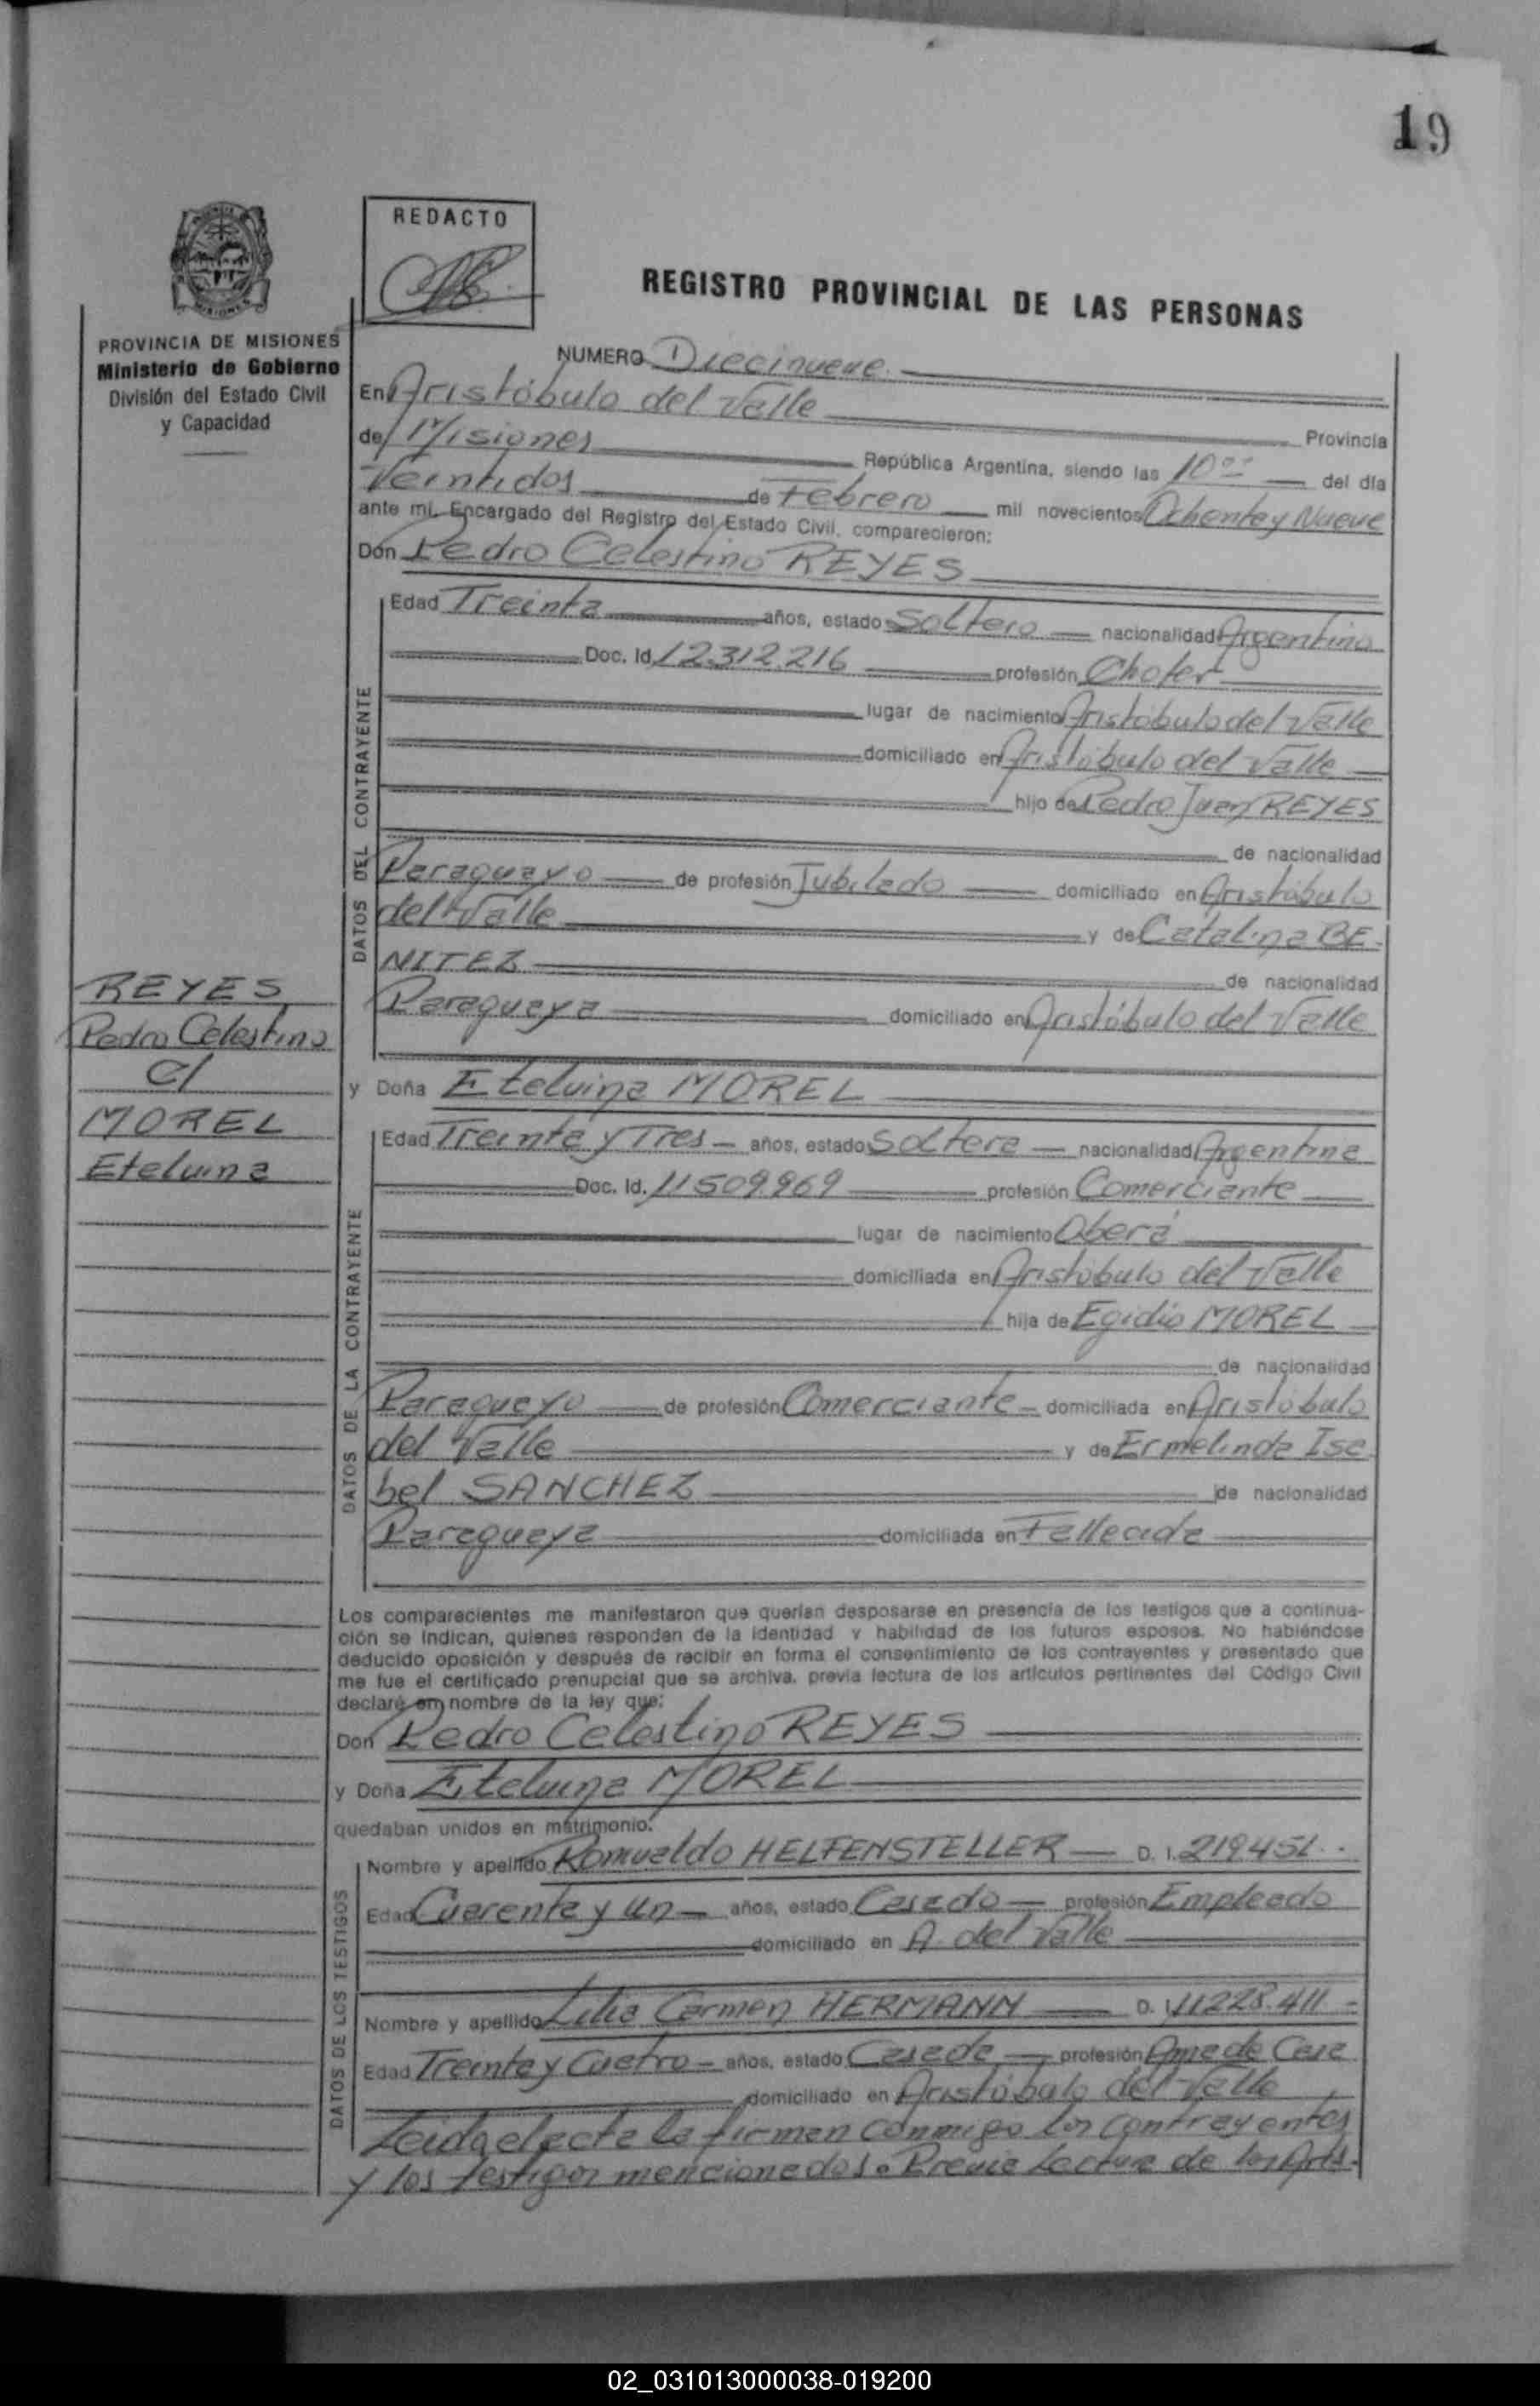 19
REDACTO
REGISTRO PROVINCIAL DE LAS PERSONAS
PROVINCIA DE MISIONES
Ministerio de Gobierno
División del Estado Civil
y Capacidad
NUMERO Diecinueve
En Aristóbulo del Valle
Provincia
de Misiones República Argentina, siendo las 10⁰⁰ del día
Veintidos de Febrero mil novecientos Ochenta y Nueve
ante mi, Encargado del Registro del Estado Civil, comparecieron:
Don Pedro Celestino REYES
DATOS DEL CONTRAYENTE
Edad Treinta años, estado Soltero nacionalidad Argentino
Doc. Id. 12.312.216 profesión Chofer
lugar de nacimiento Aristóbulo del Valle
domiciliado en Aristóbulo del Valle
hijo de Pedro Juan REYES
de nacionalidad
Paraguayo de profesión Jubilado domiciliado en Aristóbulo
del Valle y de Catalina BE-
NITEZ de nacionalidad
Paraguaya domiciliado en Aristóbulo del Valle
REYES
Pedro Celestino
c/
MOREL
Etelvina
y Doña Etelvina MOREL
DATOS DE LA CONTRAYENTE
Edad Treinta y Tres años, estado Soltera nacionalidad Argentina
Doc. Id. 11509.969 profesión Comerciante
lugar de nacimiento Oberá
domiciliada en Aristóbulo del Valle
hija de Egidio MOREL
de nacionalidad
Paraguayo de profesión Comerciante domiciliada en Aristóbulo
del Valle y de Ermelinda Isa
bel SANCHEZ de nacionalidad
Paraguaya domiciliada en Fallecida
Los comparecientes me manifestaron que querían desposarse en presencia de los testigos que a continua-
ción se indican, quienes responden de la identidad y habilidad de los futuros esposos. No habiéndose
deducido oposición y después de recibir en forma el consentimiento de los contrayentes y presentado que
me fue el certificado prenupcial que se archiva, previa lectura de los artículos pertinentes del Código Civil
declaré en nombre de la ley que:
Don Pedro Celestino REYES
y Doña Etelvina MOREL
quedaban unidos en matrimonio.
DATOS DE LOS TESTIGOS
Nombre y apellido Romualdo HELFENSTELLER D. I. 219451
Edad Cuarenta y Un años, estado Casado profesión Empleado
domiciliado en A. del Valle
Nombre y apellido Lilia Carmen HERMANN D. I. 11228.411
Edad Treinta y Cuatro años, estado Casada profesión Ama de Casa
domiciliado en Aristóbulo del Valle
Leida el acta la firman conmigo los contrayentes
y los testigos mencionados. Previa Lectura de los Arts.
02_031013000038-019200